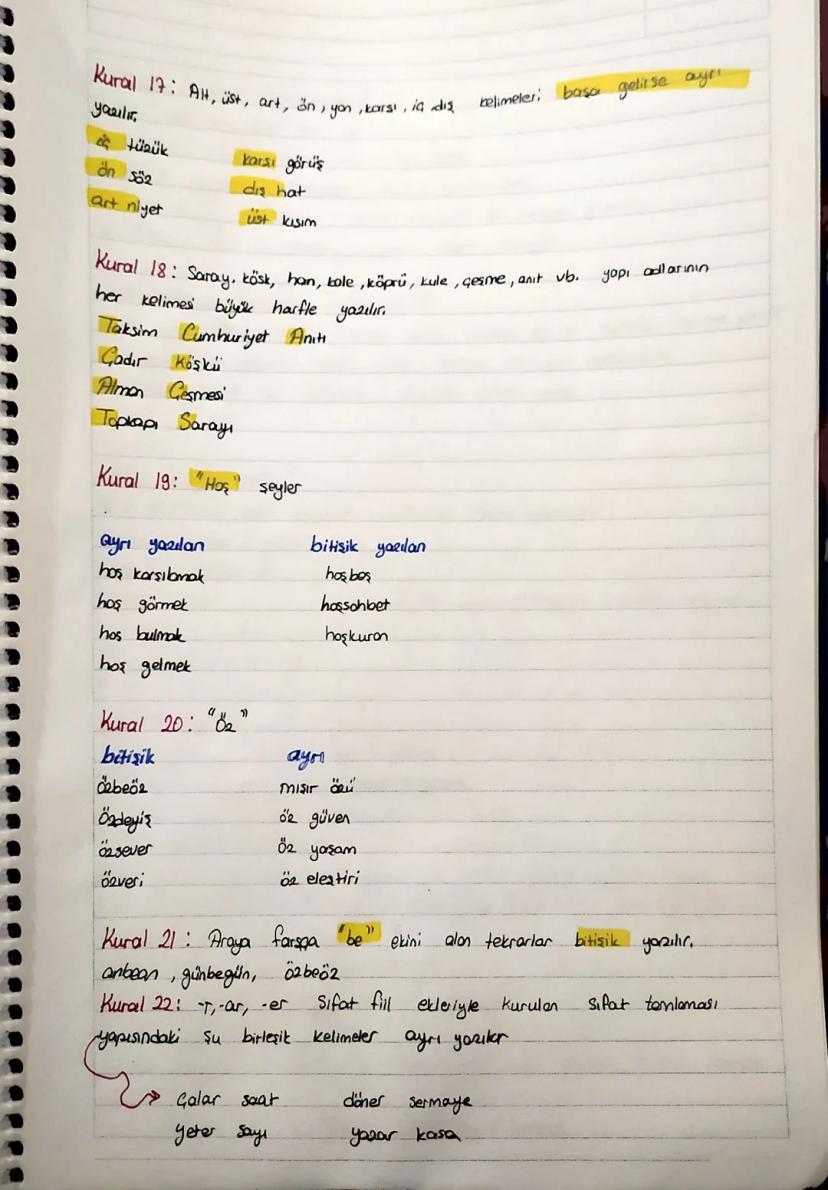 Kural 17: Alt, üst, art, ön, yan, karşı, iç dış kelimeleri başa gelirse ayrı
yazılır.
iç tüzük karşı görüş
ön söz dış hat
art niyet üst kısım
Kural 18: Saray, köşk, han, kale, köprü, kule, çeşme, anıt vb. yapı adlarının
her kelimesi büyük harfle yazılır.
Taksim Cumhuriyet Anıtı
Çadır Köşkü
Alman Çeşmesi
Topkapı Sarayı
Kural 19: "Hoş" şeyler
ayrı yazılan bitişik yazılan
hoş karşılamak hoşbeş
hoş görmek hoşsohbet
hoş bulmak hoşkuran
hoş gelmek
Kural 20: "Öz"
bitişik ayrı
özbeöz mısır özü
Özdeyiş öz güven
özsever öz yaşam
özveri öz eleştiri
Kural 21: Araya farsça "be" ekini alan tekrarlar bitişik yazılır.
anbean, günbegün, özbeöz
Kural 22: -r, -ar, -er Sıfat fiil ekleriyle kurulan sıfat tamlaması
yapısındaki şu birleşik kelimeler ayrı yazılır
Çalar saat döner sermaye
yeter sayı yazar kasa